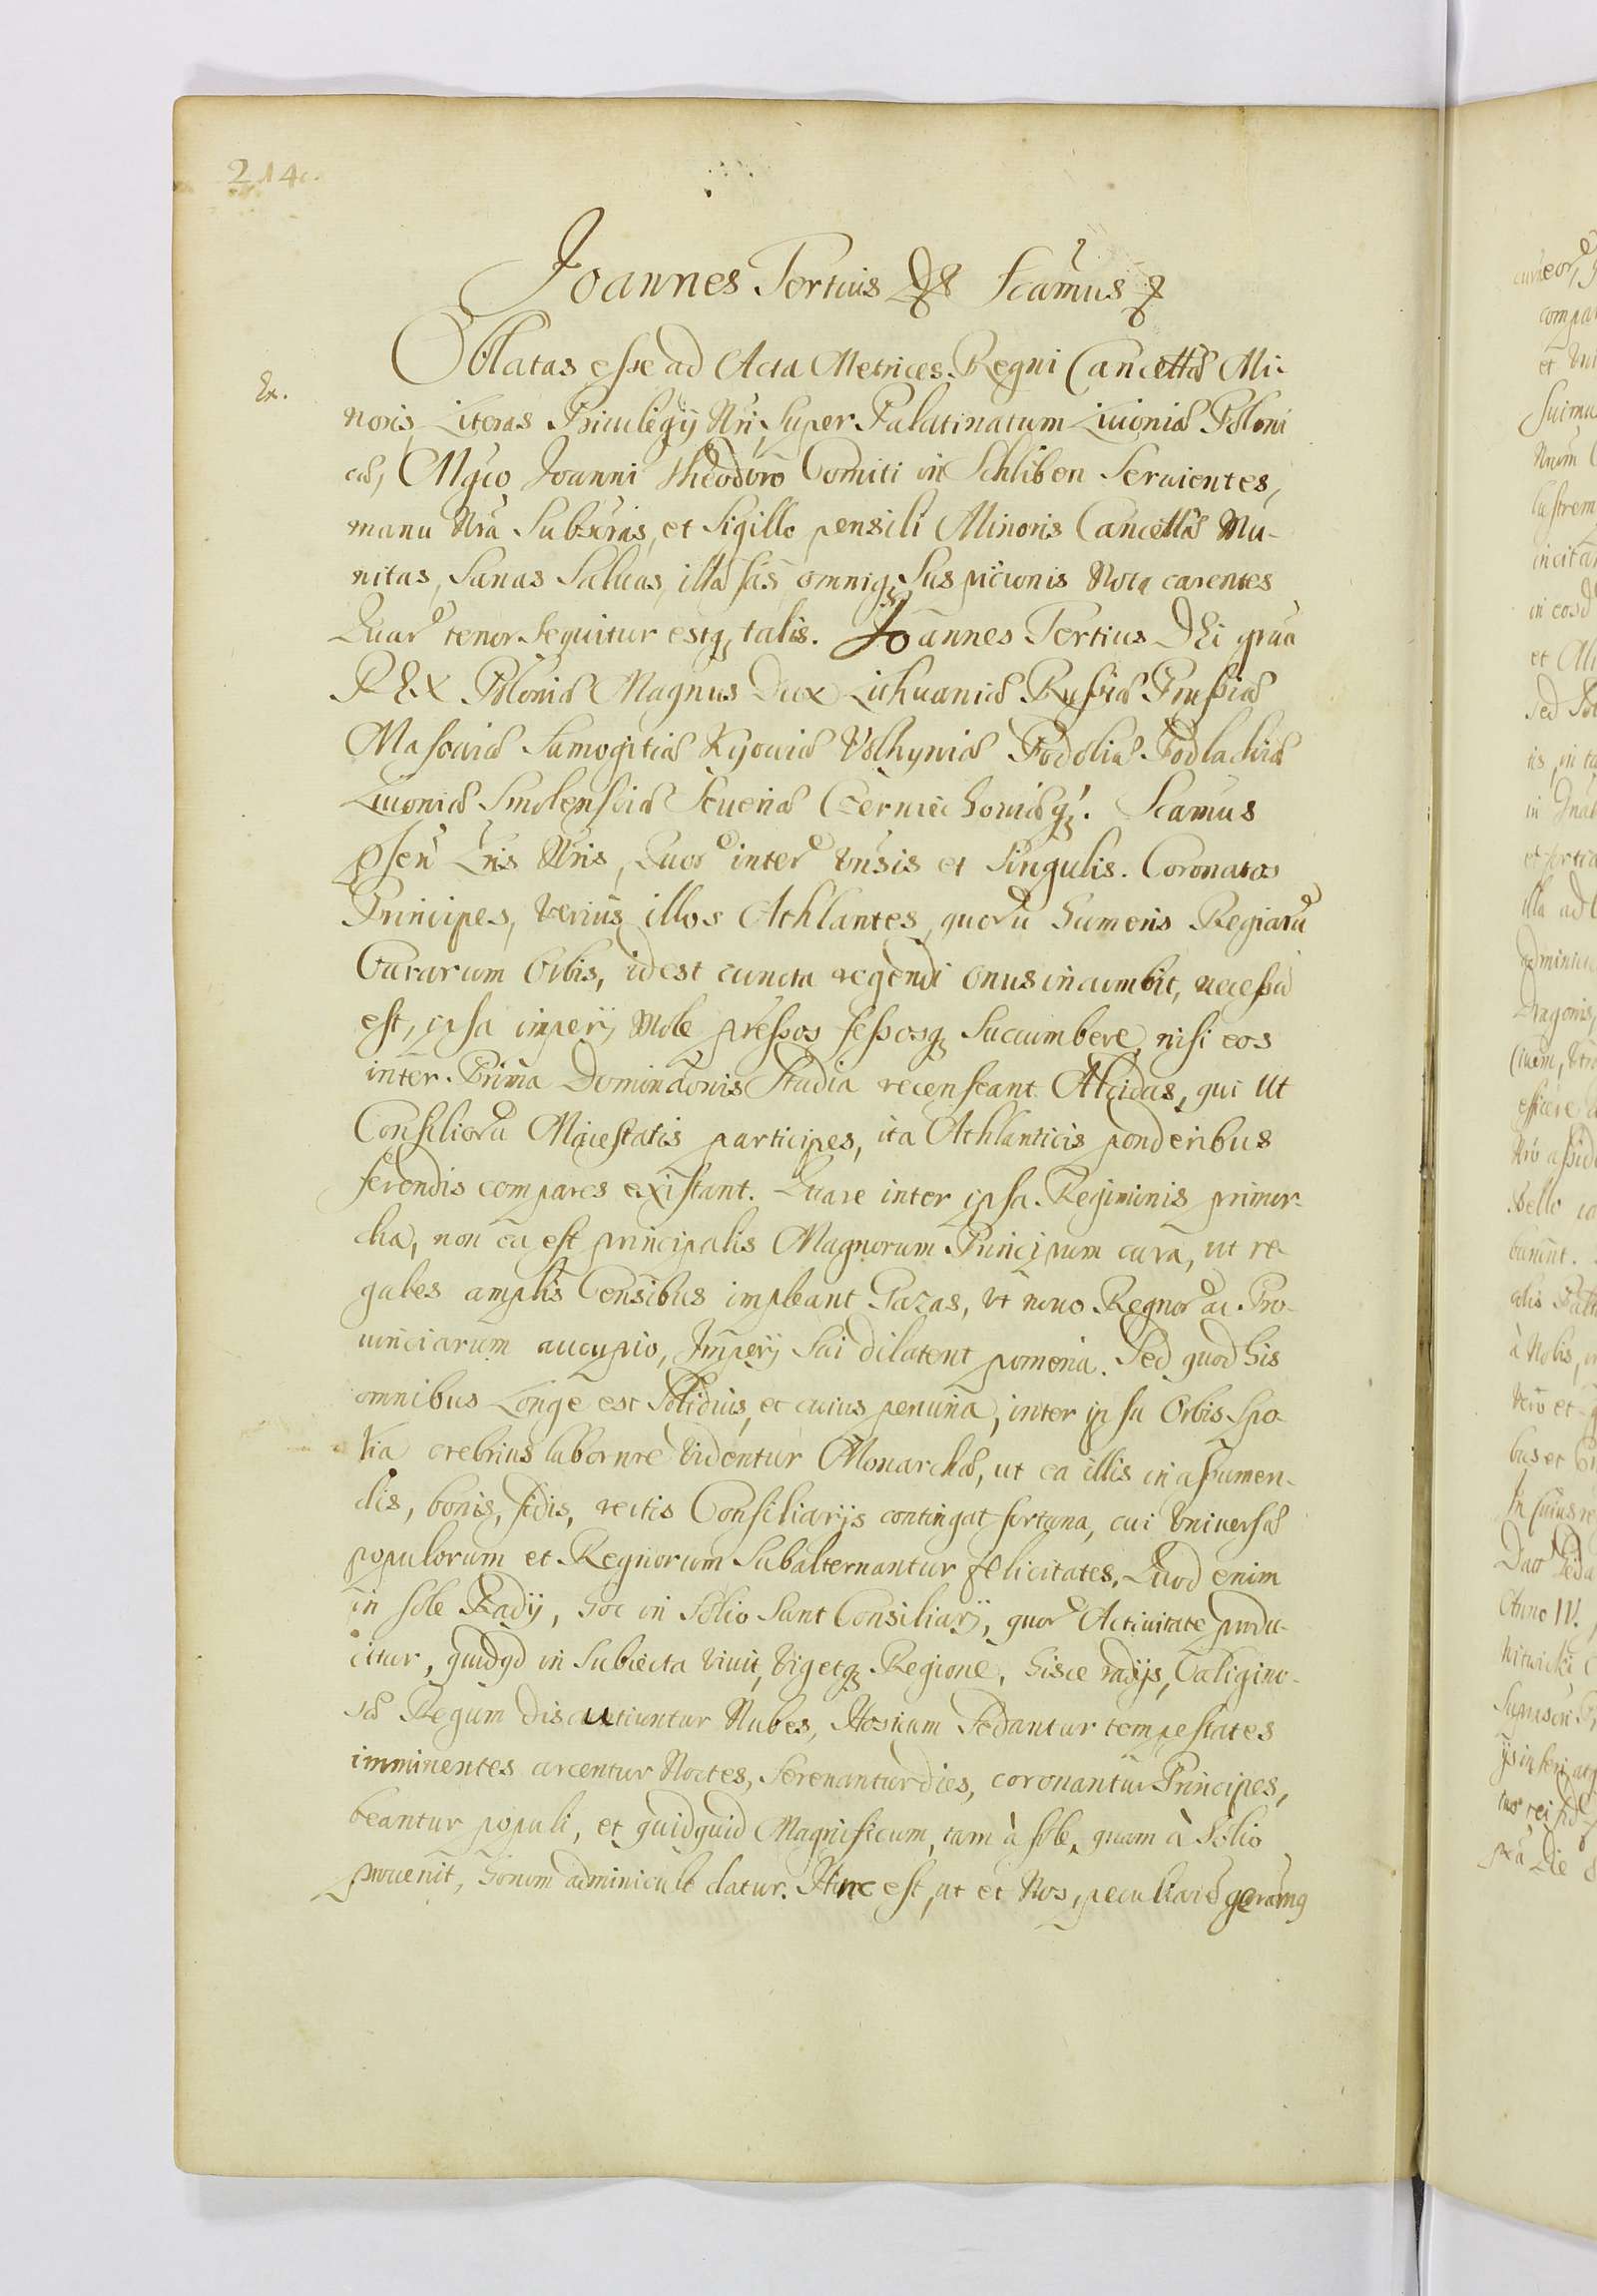 214.
Joannes Tertius &c Scamus &c
Ex.
Oblatas esse ad Acta Metrices Regni Cancellæ Mi-
noris, Literas Priuilegij Nri, Super Palatinatum Liuoniæ Poloni
cæ, Mgco Joanni Theodoro Comiti in Schliben Seruientes,
manu Nra Subscras, et Sigillo pensili Minoris Cancellæ Mu-
nitas, Sanas Saluas, illæsas omniq; Suspicionis Nota carentes
Quar tenor Sequitur estq; talis. Joannes Tertius DEi grãa
REX Poloniæ Magnus Dux Lithuaniæ Russiæ Prussiæ
Masouiæ Samogitiæ Kyouiæ Volhyniæ Podoliæ Podlachiæ
Liuoniæ Smolensciæ Seueriæ Czerniechouiæq;. Scamus
Psen Lris Nris, Quor inter Vnsis et Singulis. Coronatos
Principes, verius illos Athlantes, quorũ humeris Regiarũ
Curarum Orbis, id est cuncta regendi onus incumbit, necesse
est, ipsa imperij Mole pressos fessosq; Succumbere, nisi eos
inter Prima Dominãonis Studia recenseant Alcidas, qui Ut
Consiliorũ Maiestatis participes, ita Athlanticis ponderibus
ferendis compares existant. Quare inter ipsa Regiminis primor-
dia, non ea est principalis Magnorum Principum cura, ut re-
gales amplis Censibus impleant Gazas, Vt nouo Regnor ac Pro-
uinciarum aucupio, Imperij Sui dilatent pomeria. Sed quod his
omnibus Longe est Solidius, et cuius penuria, inter ipsa Orbis Spo-
lia crebrius laborare Videntur Monarchæ, ut ea illis in assumen-
dis, bonis, fidis, rectis Consiliarijs contingat fortuna, cui Vniuersæ
populorum et Regnorum Subalternantur felicitates. Quod enim
in Sole Radij, hoc in Solio Sunt Consiliarij, quor Actiuitate produ-
citur, quidqd in Subiecta Viuit, Vigetq; Regione, hisce radijs, Caligino-
sæ Regum discutiuntur Nubes, Hosticum Sedantur tempestates
imminentes arcentur Noctes, Serenantur dies, coronantur Principes,
beantur populi, et quidquid Magnificum, tam à Sole, quam à Solio
prouenit, horum adminiculo datur. Hinc est, ut et Nos, peculiarẽ geramq